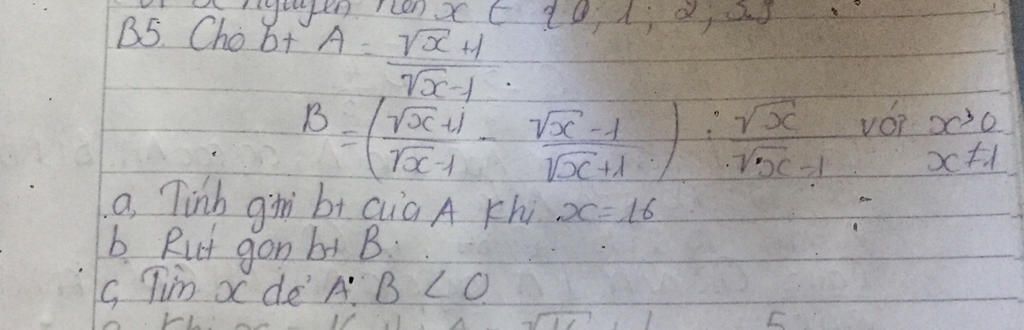 x nguyên nên x ∈ {0; 1; 2; 3}
B5. Cho bt A = (√x+1)/(√x-1).
B = ((√x+1)/(√x-1) - (√x-1)/(√x+1)) : √x/(√x-1) với x>0 x≠1
a, Tính gtri bt của A khi x=16
b. Rút gọn bt B.
c, Tìm x để A. B < 0